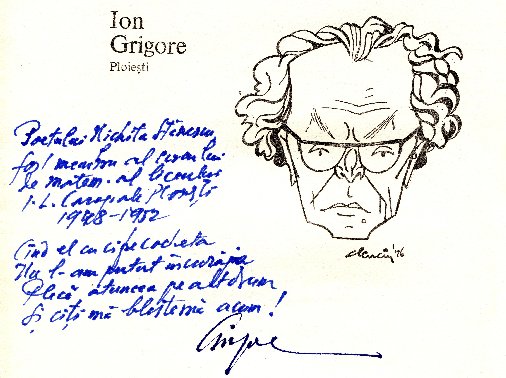 Ion
Grigore
Ploiești
Poetului Nichita Stănescu,
fost membru al cercului
de matem. al liceului
I. L. Caragiale Ploiești
1948-1952
Cînd el cu
Nu l-am putut încuraja
Plecă atuncea pe alt drum
Și cîți mă blestemă acum!
'76